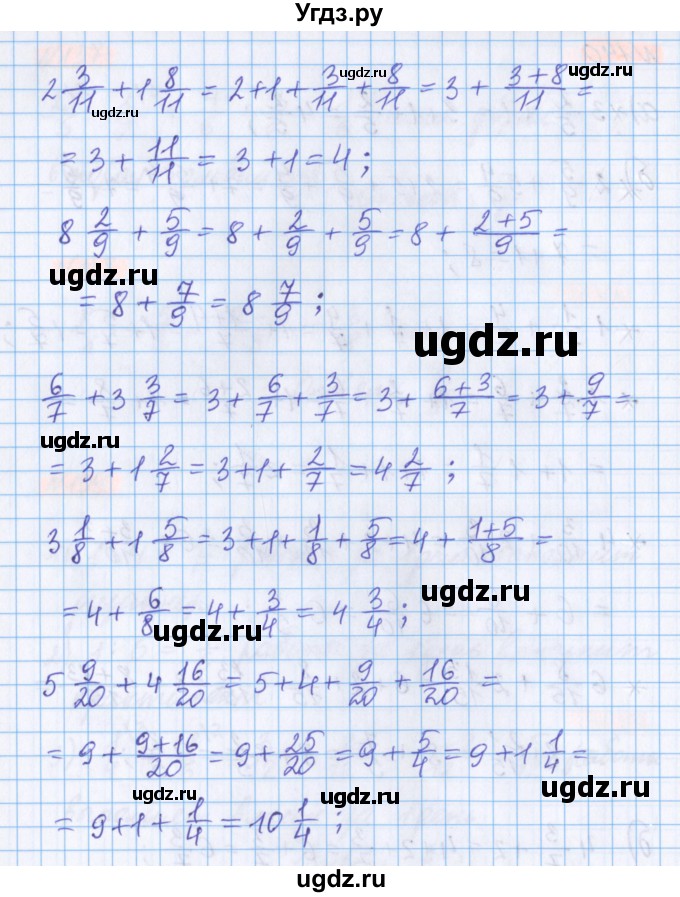 Угдз.ру
2 3/11 + 1 8/11 = 2+1+ 3/11 + 8/11 = 3 + (3+8)/11 =
ugdz.ru
ugdz.ru
ugdz.ru
= 3 + 11/11 = 3+1 = 4;
8 2/9 + 5/9 = 8 + 2/9 + 5/9 = 8 + (2+5)/9 =
ugdz.ru
= 8 + 7/9 = 8 7/9 ;
ugdz.ru
6/7 + 3 3/7 = 3 + 6/7 + 3/7 = 3 + (6+3)/7 = 3 + 9/7 =
ugdz.ru
= 3 + 1 2/7 = 3+1+ 2/7 = 4 2/7 ;
3 1/8 + 1 5/8 = 3+1+ 1/8 + 5/8 = 4 + (1+5)/8 =
ugdz.ru
= 4 + 6/8 = 4 + 3/4 = 4 3/4 ;
ugdz.ru
5 9/20 + 4 16/20 = 5+4+ 9/20 + 16/20 =
= 9 + (9+16)/20 = 9 + 25/20 = 9 + 5/4 = 9 + 1 1/4 =
ugdz.ru
ugdz.ru
= 9+1+ 1/4 = 10 1/4 ;
ugdz.ru